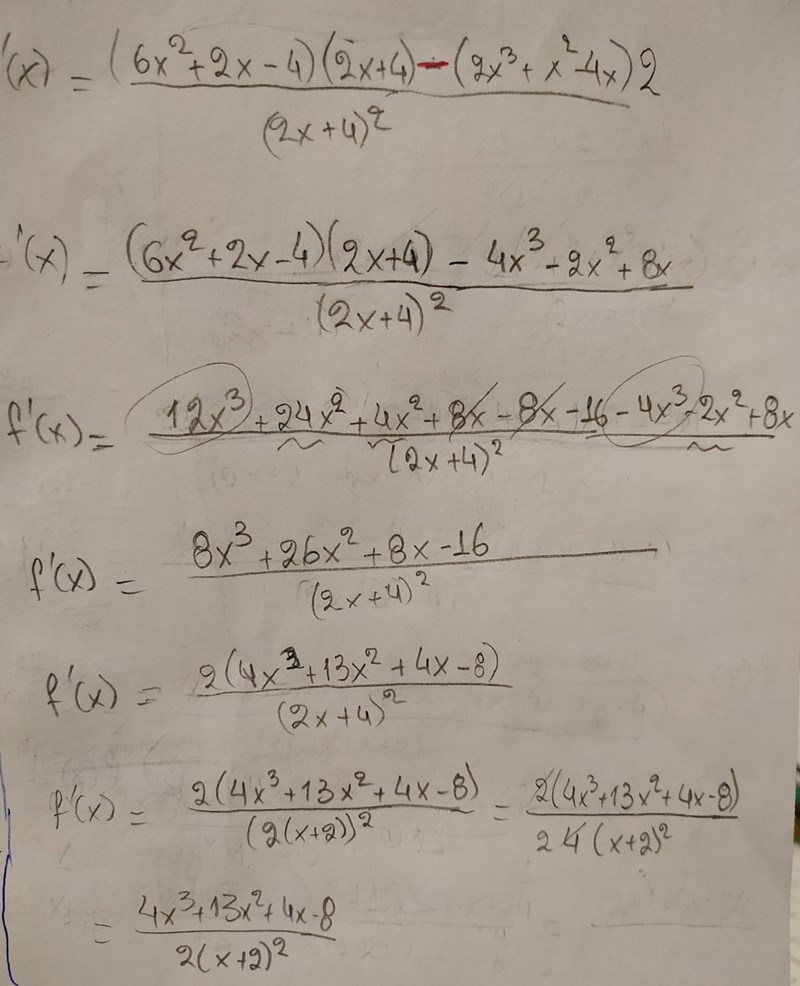 '(x) = (6x²+2x-4)(2x+4)-(2x³+x²-4x)2
(2x+4)²
'(x) = (6x²+2x-4)(2x+4) - 4x³-2x²+8x
(2x+4)²
f'(x) = 12x³+24x²+4x²+8x-8x-16-4x³-2x²+8x
(2x+4)²
f'(x) = 8x³+26x²+8x-16
(2x+4)²
f'(x) = 2(4x³+13x²+4x-8)
(2x+4)²
f'(x) = 2(4x³+13x²+4x-8) = 2(4x³+13x²+4x-8)
(2(x+2))² 2 4(x+2)²
= 4x³+13x²+4x-8
2(x+2)²